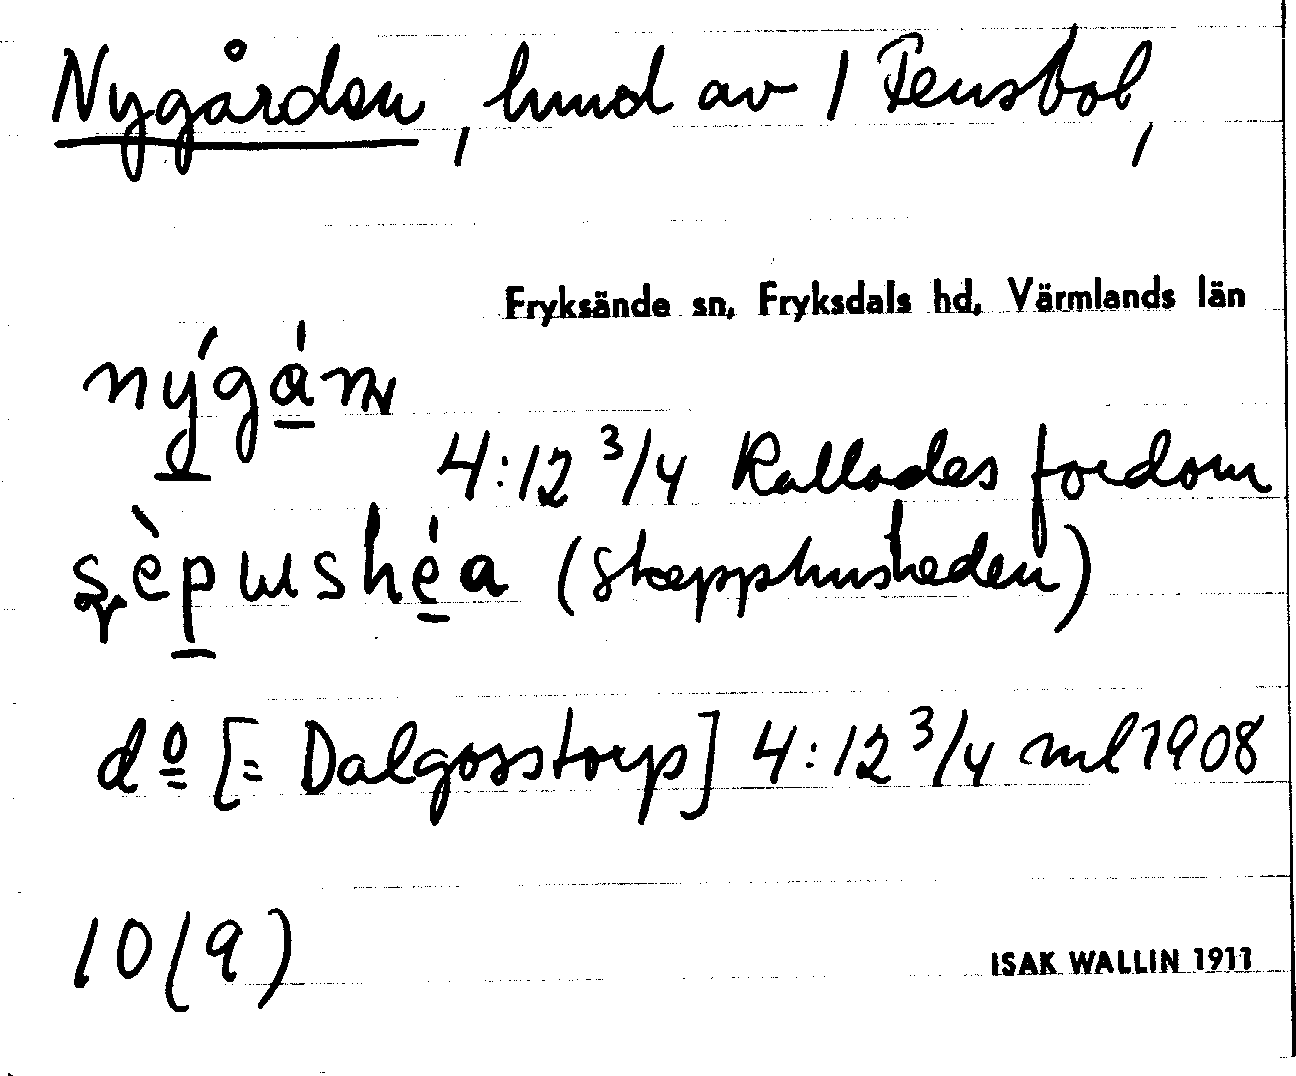 Nygården, hmd av 1 Fensbol,
Fryksände sn, Fryksdals hd, Värmlands län
nýgán
4:12 3/4 Kallades fordom
ʂèpɯshéa (Skepphusheden)
dº [= Dalgosstorp] 4:12 3/4 ml 1908
10(9)
ISAK WALLIN 1911